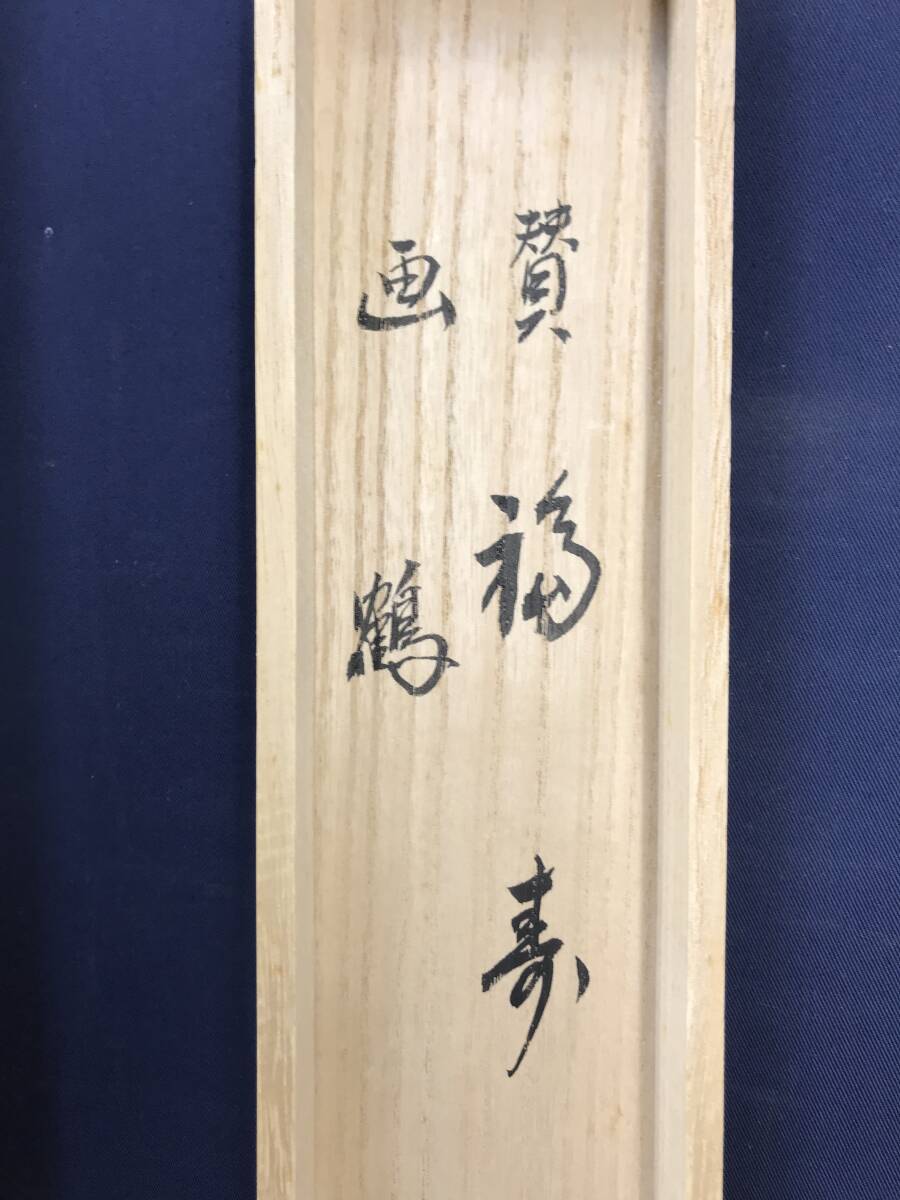 賛福寿
画鶴